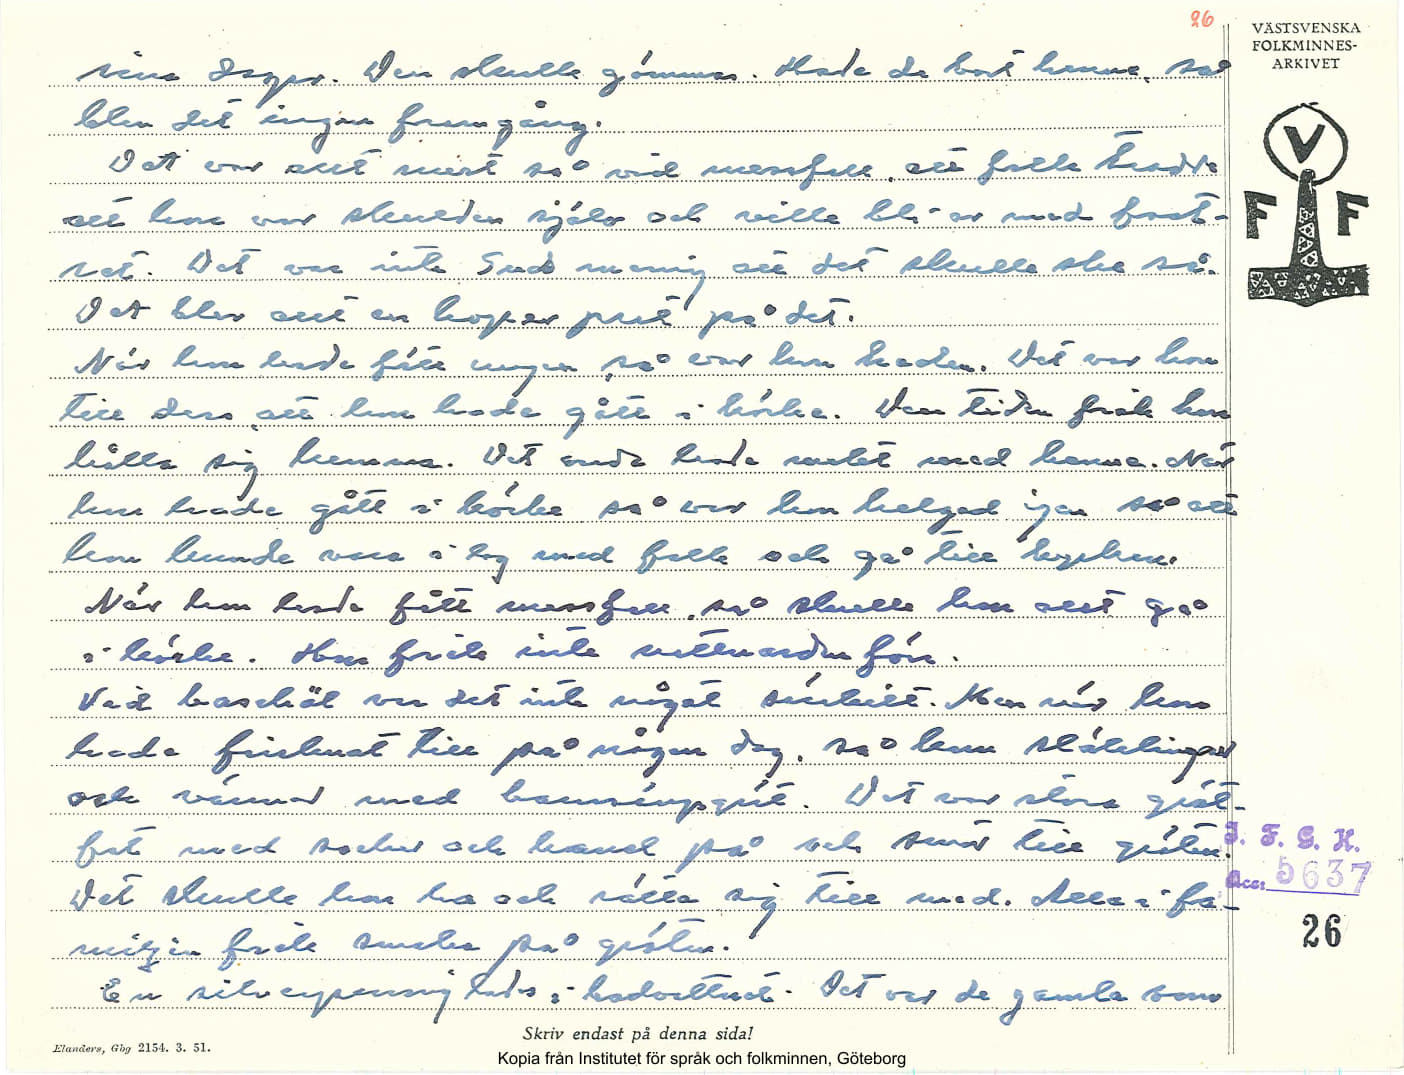 26
VÄSTSVENSKA
FOLKMINNES-
ARKIVET
V
F F
sina dagar. Den skulle gömmas. Hade de bort henne, så
blev det ingen framgång.
Det var allt mest så vid messfall, att folk trodde
att hon var skulden själv och ville bli av med fost-
ret. Det var inte Guds mening att det skulle ske så.
Det blev allt en hoper prat på det.
När hon hade fått ungen, så var hon heden. Det var hon
till dess, att hon hade gått i körka. Den tiden fick hon
hålla sig hemma. Det onda hade makt med henne. När
hon hade gått i körka så var hon helgad igen så att
hon kunde vara i lag med folk och gå till
När hon hade fått messfall, så skulle hon allt gå
i körka. Hon fick inte nattvarden förr.
Vid barsköl var det inte något särskilt. Men när hon
hade frisknat till på någon dag, så kom släktingar
och vänner med barnsängsgröt. Det var stora gröt-
fat med socker och kanel på och smör till gröten.
Det skulle hon ha och rätta sig till med. Alla i fa-
miljen fick smaka på gröten.
En silverpenning lades i badvattnet. Det var de gamla som
I. F. G. H.
Acc: 5637
26
Skriv endast på denna sida!
Elanders, Gbg 2154. 3. 51.
Kopia från Institutet för språk och folkminnen, Göteborg